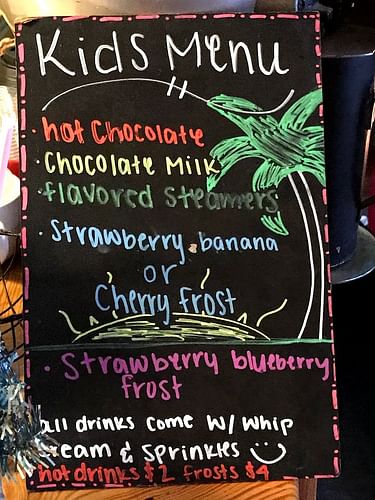 Kids Menu
· hot Chocolate
· Chocolate Milk
· flavored Steamers
· Strawberry banana
or
Cherry frost
· Strawberry blueberry
frost
all drinks come w/ whip
cream & sprinkles
hot drinks $2 frosts $4